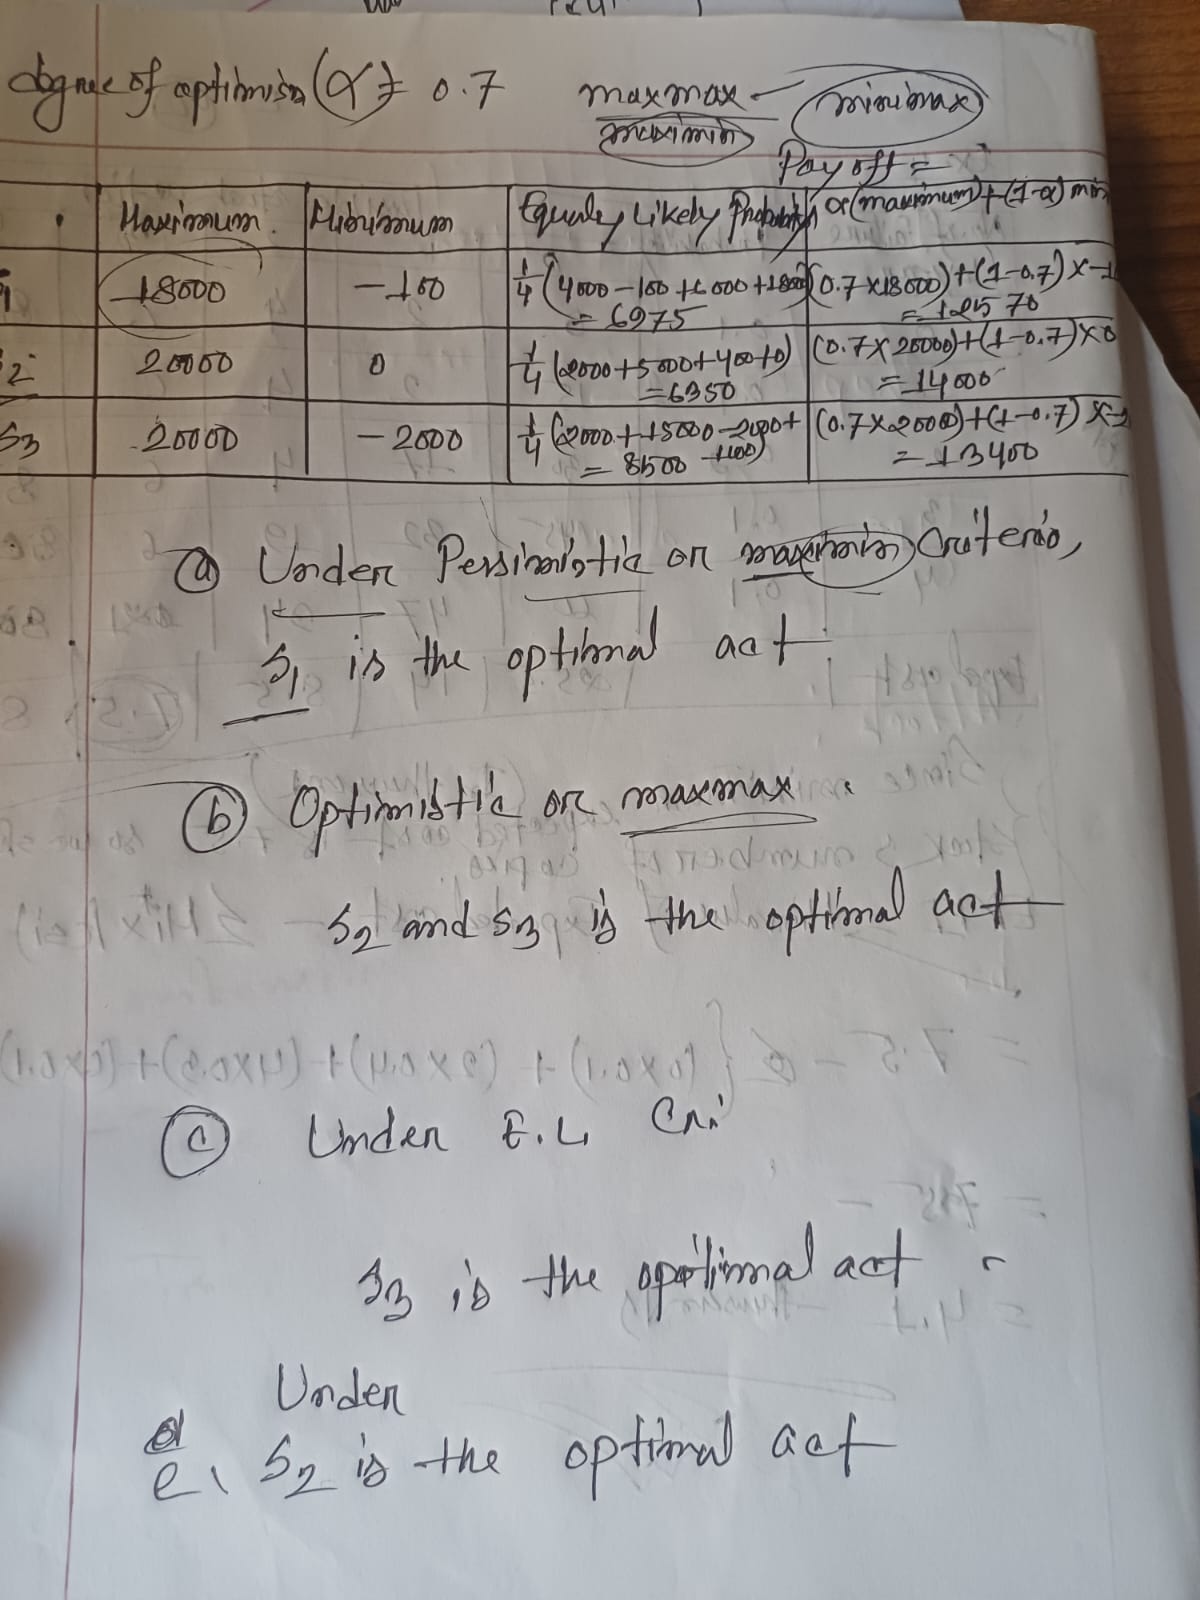 degree of optimism (α) = 0.7 maxmax minimax
maximin
Pay off =
Maximum. Minimum Equaly Likely Probability α(maximum)+(1-α) min
18000 -100 1/4 (4000-100+6000+18000) (0.7×18000)+(1-0.7)×-1
= 6975 = 12570
S2 20000 0 1/4 (20000+5000+400+0) (0.7×20000)+(1-0.7)×0
= 6350 = 14000
S3 20000 -2000 1/4 (20000+15000-2000+ (0.7×20000)+(1-0.7)×-2
= 8500 = 13400
(a) Under Perssimistic or maximin Criterio,
S1 is the optimal act
(b) Optimistic or maxmax.
S2 and S3 is the optimal act
(c) Under E.L. Cri
S3 is the opotimal act
Under
d
e. S2 is the optimal act